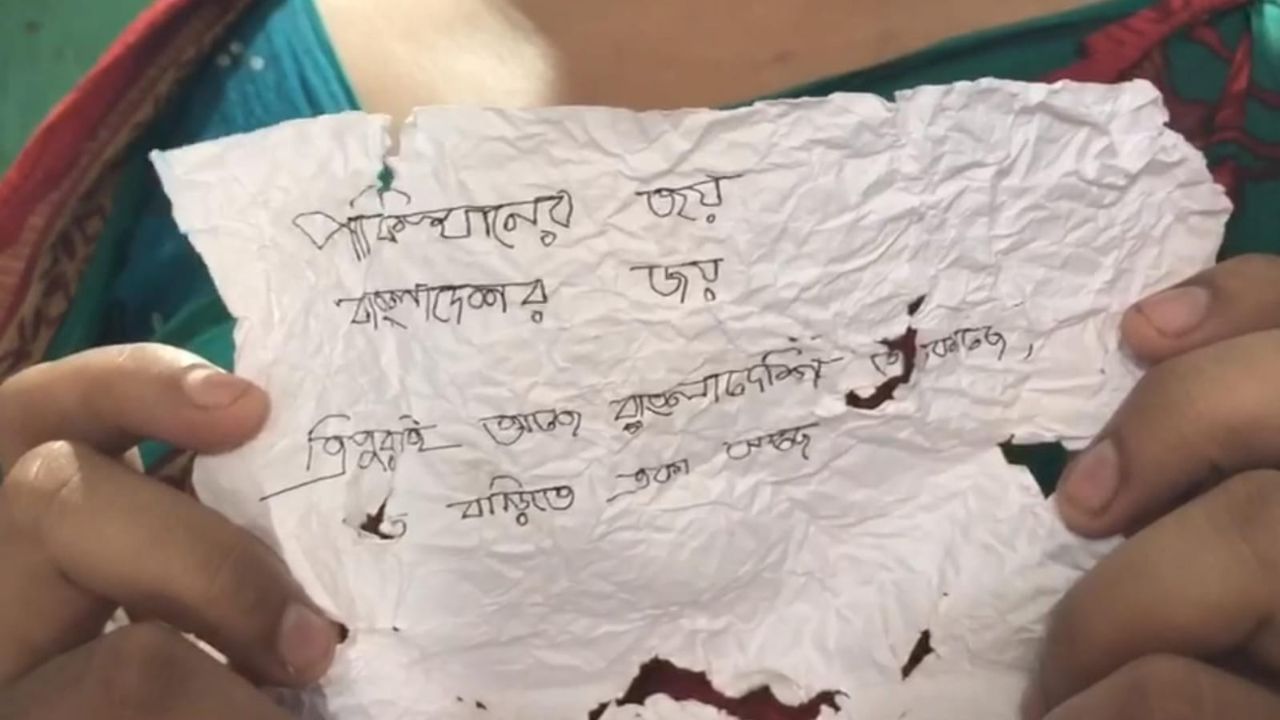 পাকিস্থানের জয়
বাংলাদেশর জয়
ত্রিপুরাই আছে বাংলাদেশি
বাড়িতে একা